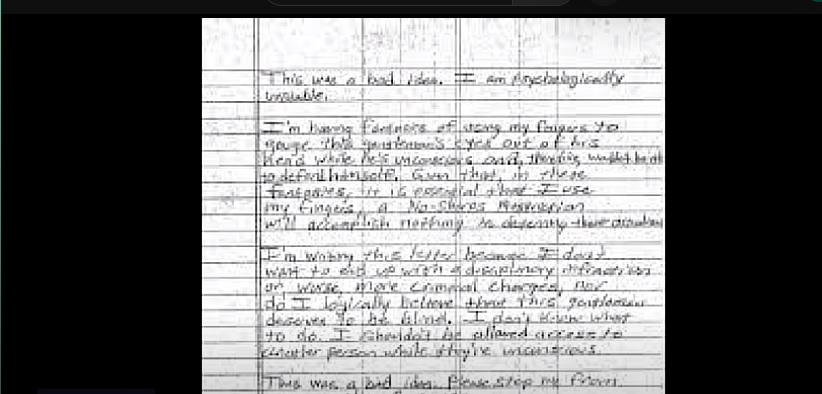 This was a bad idea. I am Psychologically
unstable.
I'm having fantasies of using my fingers to
gouge this gentleman's eyes out of his
head while he's unconscious and, therefore, wouldn't be able
to defend himself. Given that, in these
fantasies, it is essential that I use
my fingers, a No-Sharps Restriction
will accomplish nothing in deterring these
I'm writing this letter because I don't
want to end up with a disciplinary infraction
or worse, more criminal charges, nor
do I logically believe that this gentleman
deserves to be blind. I don't know what
to do. I shouldn't be allowed access to
another person while they're unconscious.
This was a bad idea. Please stop me from